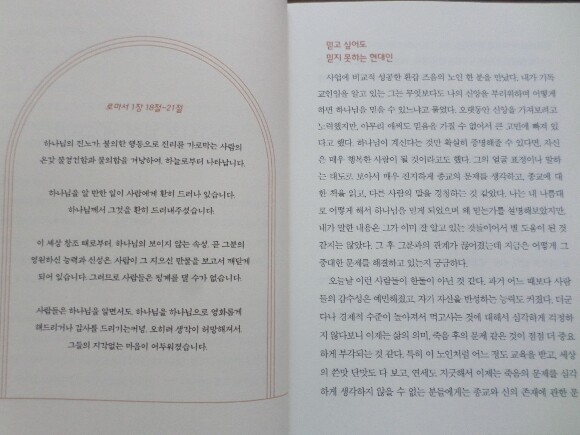 로마서 1장 18절-21절
하나님의 진노가 불의한 행동으로 진리를 가로막는 사람의
온갖 불경건함과 불의함을 겨냥하여, 하늘로부터 나타납니다.
하나님을 알 만한 일이 사람에게 환히 드러나 있습니다.
하나님께서 그것을 환히 드러내주셨습니다.
이 세상 창조 때로부터, 하나님의 보이지 않는 속성, 곧 그분의
영원하신 능력과 신성은 사람이 그 지으신 만물을 보고서 깨닫게
되어 있습니다. 그러므로 사람들은 핑계를 댈 수가 없습니다.
사람들은 하나님을 알면서도, 하나님을 하나님으로 영화롭게
해드리거나 감사를 드리기는커녕, 오히려 생각이 허망해져서,
그들의 지각없는 마음이 어두워졌습니다.
믿고 싶어도
믿지 못하는 현대인
사업에 비교적 성공한 환갑 즈음의 노인 한 분을 만났다. 내가 기독
교인임을 알고 있는 그는 무엇보다도 나의 신앙을 부러워하며 어떻게
하면 하나님을 믿을 수 있느냐고 물었다. 오랫동안 신앙을 가져보려고
노력했지만, 아무리 애써도 믿음을 가질 수 없어서 큰 고민에 빠져 있
다고 했다. 하나님이 계신다는 것만 확실히 증명해줄 수 있다면, 자신
은 매우 행복한 사람이 될 것이라고도 했다. 그의 얼굴 표정이나 말하
는 태도로 보아서 매우 진지하게 종교의 문제를 생각하고, 종교에 대
한 책을 읽고, 다른 사람의 말을 경청하는 것 같았다. 나는 내 나름대
로 어떻게 해서 하나님을 믿게 되었으며 왜 믿는가를 설명해보았지만,
내가 말한 내용은 그가 이미 잘 알고 있는 것들이어서 별 도움이 된 것
같지는 않았다. 그 후 그분과의 관계가 끊어졌는데 지금은 어떻게 그
중대한 문제를 해결하고 있는지 궁금하다.
오늘날 이런 사람들이 한둘이 아닌 것 같다. 과거 어느 때보다 사람
들의 감수성은 예민해졌고, 자기 자신을 반성하는 능력도 커졌다. 더군
다나 경제적 수준이 높아져서 먹고사는 것에 대해서 심각하게 걱정하
지 않다보니 이제는 삶의 의미, 죽음 후의 문제 같은 것이 점점 더 중요
하게 부각되는 것 같다. 특히 이 노인처럼 어느 정도 교육을 받고, 세상
의 쓴맛 단맛도 다 보고, 연세도 지긋해서 이제는 죽음의 문제를 심각
하게 생각하지 않을 수 없는 분들에게는 종교와 신의 존재에 관한 문